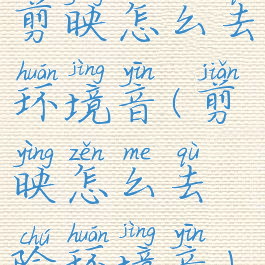 剪映怎么去
huán jìng yīn jiǎn
环境音(剪
yìng zěn me qù
映怎么去
chú huán jìng yīn
除环境音)